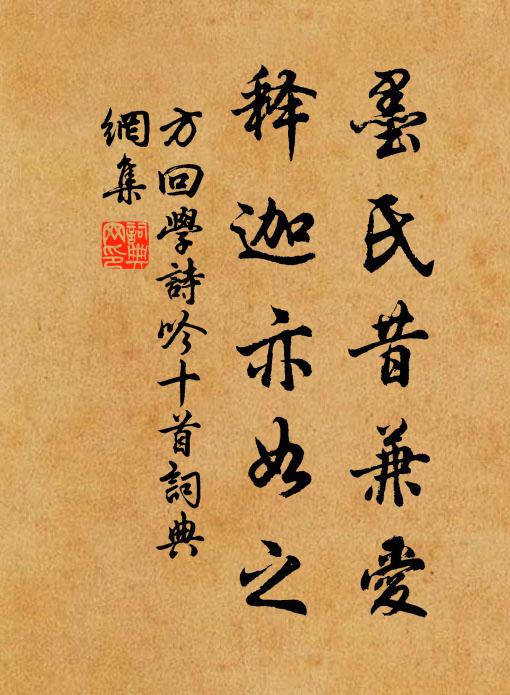 墨氏昔兼愛
释迦亦如之
方回學詩吟十首詞典
網集
詞典
网印